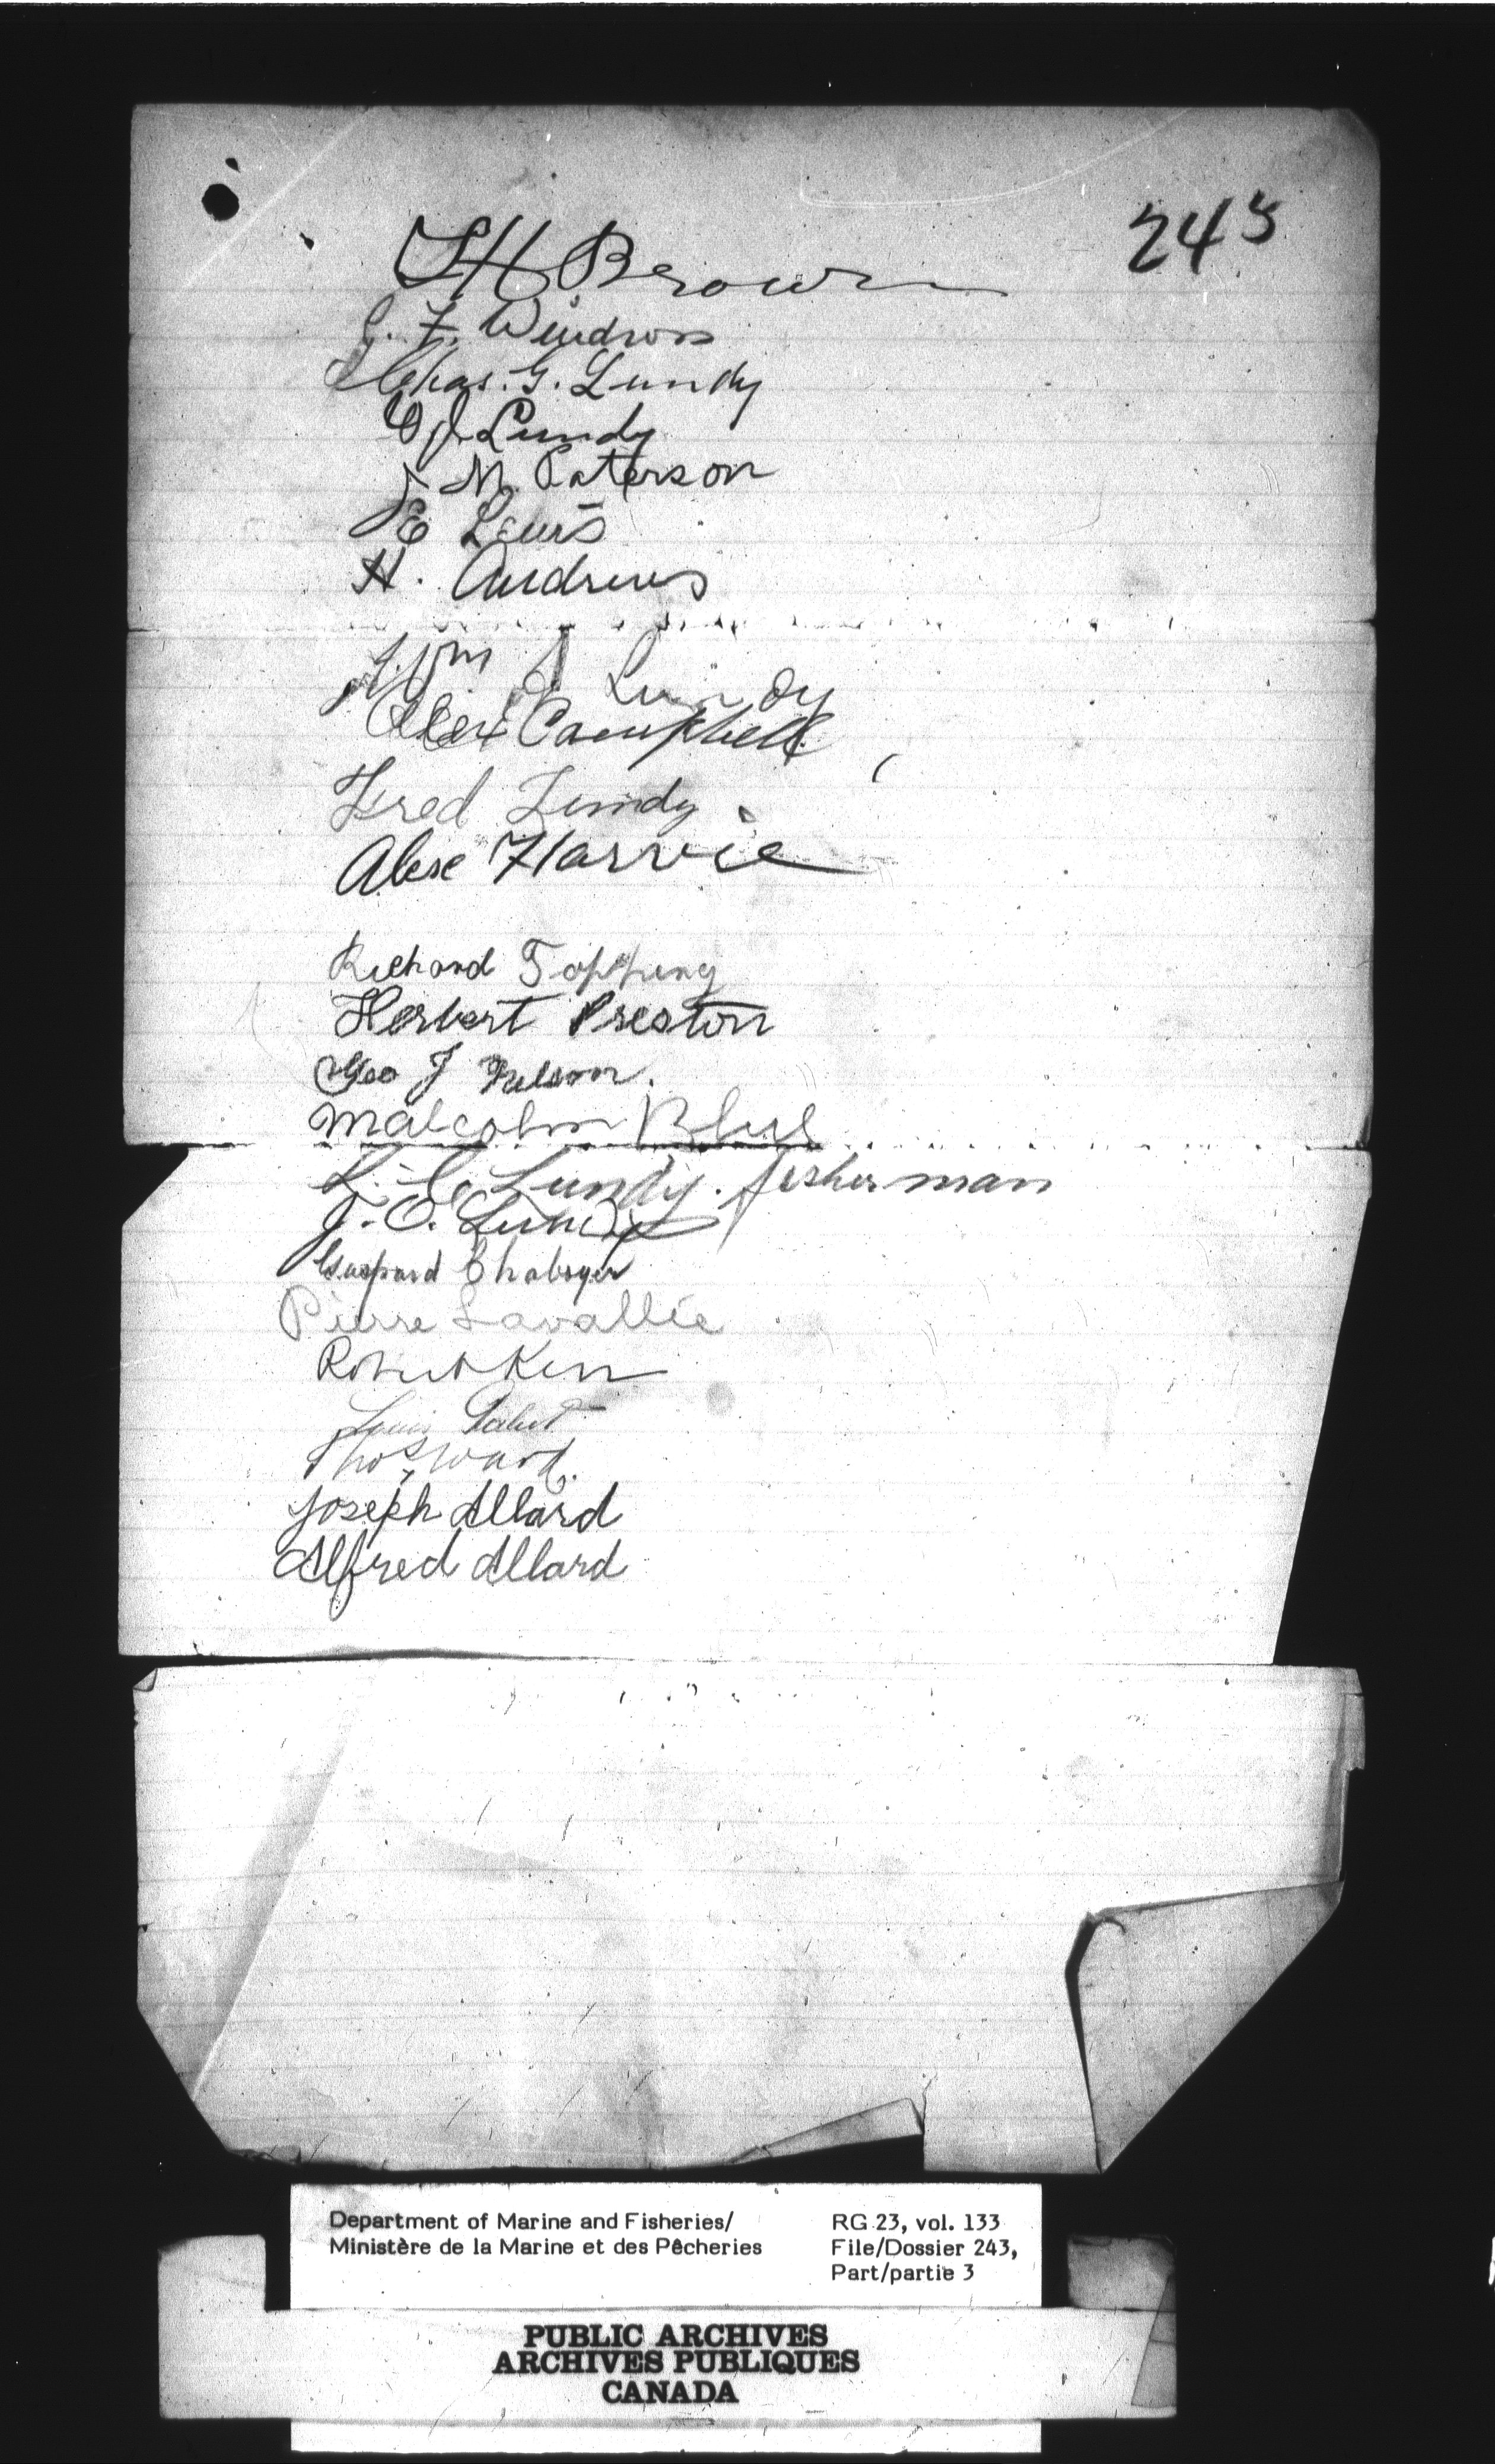 243
H Brown
Chas. G. Lundy
J Lundy
M. Paterson
E Lewis
H. Andrews
Wm J Lundy
Alex Campbell
Fred Lundy
Alex Harvie
Richard Topping
Herbert Preston
Geo J Nelson.
Malcolm Blue
Lundy. fisherman
J. O. Lundy
Gaspard Chaboyer
Pierre Lavallée
Robert Kerr
Louis
Thos Ward.
Joseph Allard
Alfred Allard
Department of Marine and Fisheries/
Ministère de la Marine et des Pêcheries
RG 23, vol. 133
File/Dossier 243,
Part/partie 3
PUBLIC ARCHIVES
ARCHIVES PUBLIQUES
CANADA